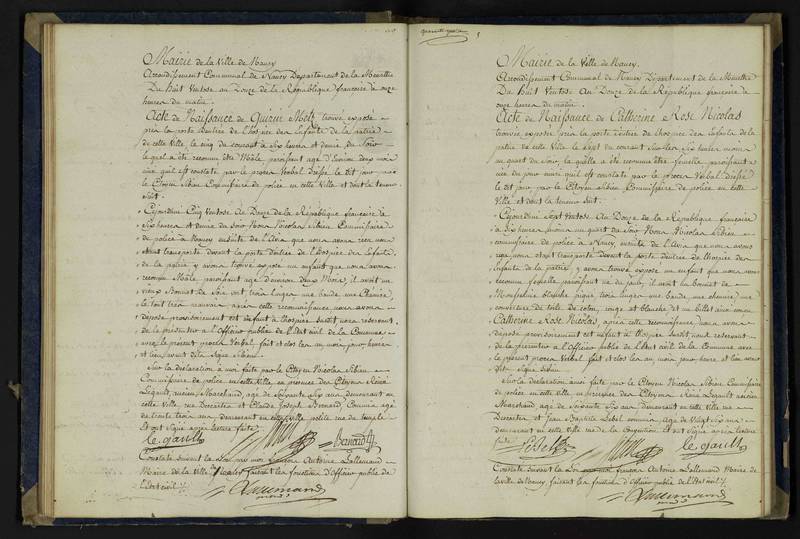 Mairie de la Ville de Nancy
Arrondissement Communal de Nancy Département de la Meurthe
Du Huit Ventose an Douze de la République française à onze
heures du matin.
Acte de Naissance de Quirin Metz trouvé exposé
près la porte d'entrée de l'hospice des Enfants de la patrie
de cette Ville le cinq du courant à six heures et demie du Soir
lequel a été reconnu être Mâle paroissant agé d'environ deux mois
ainsi qu'il est constaté par le procès Verbal dressé le dit jour par
le Citoyen Sibien Commissaire de police en cette Ville et dont la teneur
suit.
Cejourdhui Cinq Ventose An Douze de la République française à
six heures et demie du soir Nous Nicolas Sibien Commissaire
de police à Nancy ensuite de l'avis que nous avons reçu nous
étant transporté devant la porte d'entrée de l'hospice des Enfants
de la patrie y avons trouvé exposé un enfant que nous avons
reconnu Mâle paroissant agé d'environ deux Mois, il avoit un
vieux Bonnet de trois langes une bande une Chemise,
le tout très mauvais après cette reconnoissance nous avons
déposé provisoirement cet enfant à l'hospice susdit nous reservant
de le présenter à l'Officier public de l'Etat civil de la Commune
avec le présent procès Verbal fait et clos les an, mois, jour, heure
et lieu avant dits signé Sibien.
Sur la déclaration à moi faite par le Citoyen Nicolas Sibien
Commissaire de police en cette Ville, en présence des Citoyens Réné
Legault, ancien Marchand, agé de soixante six ans demeurant en
cette Ville rue et Claude Joseph Bernard, Commis agé
de trente trois ans demeurant en cette Ville petite rue du temple
Et ont signé après lecture faite.
le gault Bernard
Constaté suivant la Loi par moi François Antoine Lallemand
Maire de la Ville de Nancy faisant les fonctions d'Officier public de
l'Etat civil
Lallemand
Mairie de la Ville de Nancy.
Arrondissement Communal de Nancy Département de la Meurthe
Du Huit Ventose An Douze de la République française à
onze heures du matin.
Acte de Naissance de Catherine Rose Nicolas
trouvée exposée près la porte d'entrée de l'hospice des Enfants de la
patrie de cette Ville le sept du courant à six heures moins
un quart du Soir, laquelle a été reconnue être femelle, paroissant
née du jour ainsi qu'il est constaté par le procès Verbal dressé
le dit jour par le Citoyen Sibien Commissaire de police en cette
Ville et dont la teneur suit.
Cejourdhui Sept Ventose An Douze de la République française
à six heures moins un quart du Soir Nous Nicolas Sibien
commissaire de police à Nancy, ensuite de l'Avis que nous avons
reçu nous étant transporté devant la porte d'entrée de l'hospice des
Enfants de la patrie y avons trouvé exposé un enfant que nous avons
reconnu femelle paroissant né du jour, il avoit un bonnet de
Mousseline blanche piqué, trois langes une bande, une chemise, une
couverture de toile de coton, rouge et blanche et un billet
Catherine Rose Nicolas, après cette reconnoissance nous avons
déposé provisoirement cet enfant à l'hospice susdit nous reservant
de le présenter à l'Officier public de l'Etat civil de la Commune avec
le présent procès Verbal fait et clos les an, mois, jour, heure et lieu avant
dits signé Sibien.
Sur la déclaration à moi faite par le Citoyen Nicolas Sibien Commissaire
de police en cette Ville, en présence des Citoyens Réné Legault ancien
Marchand, agé de soixante six ans demeurant en cette Ville rue
et Jean Baptiste Lebel agé de Vingt six ans
demeurant en cette Ville rue de la et ont signé après lecture
faite.
Lebel le gault
Constaté suivant la Loi par moi François Antoine Lallemand Maire de
la Ville de Nancy, faisant les fonctions d'Officier public de l'Etat civil
Lallemand